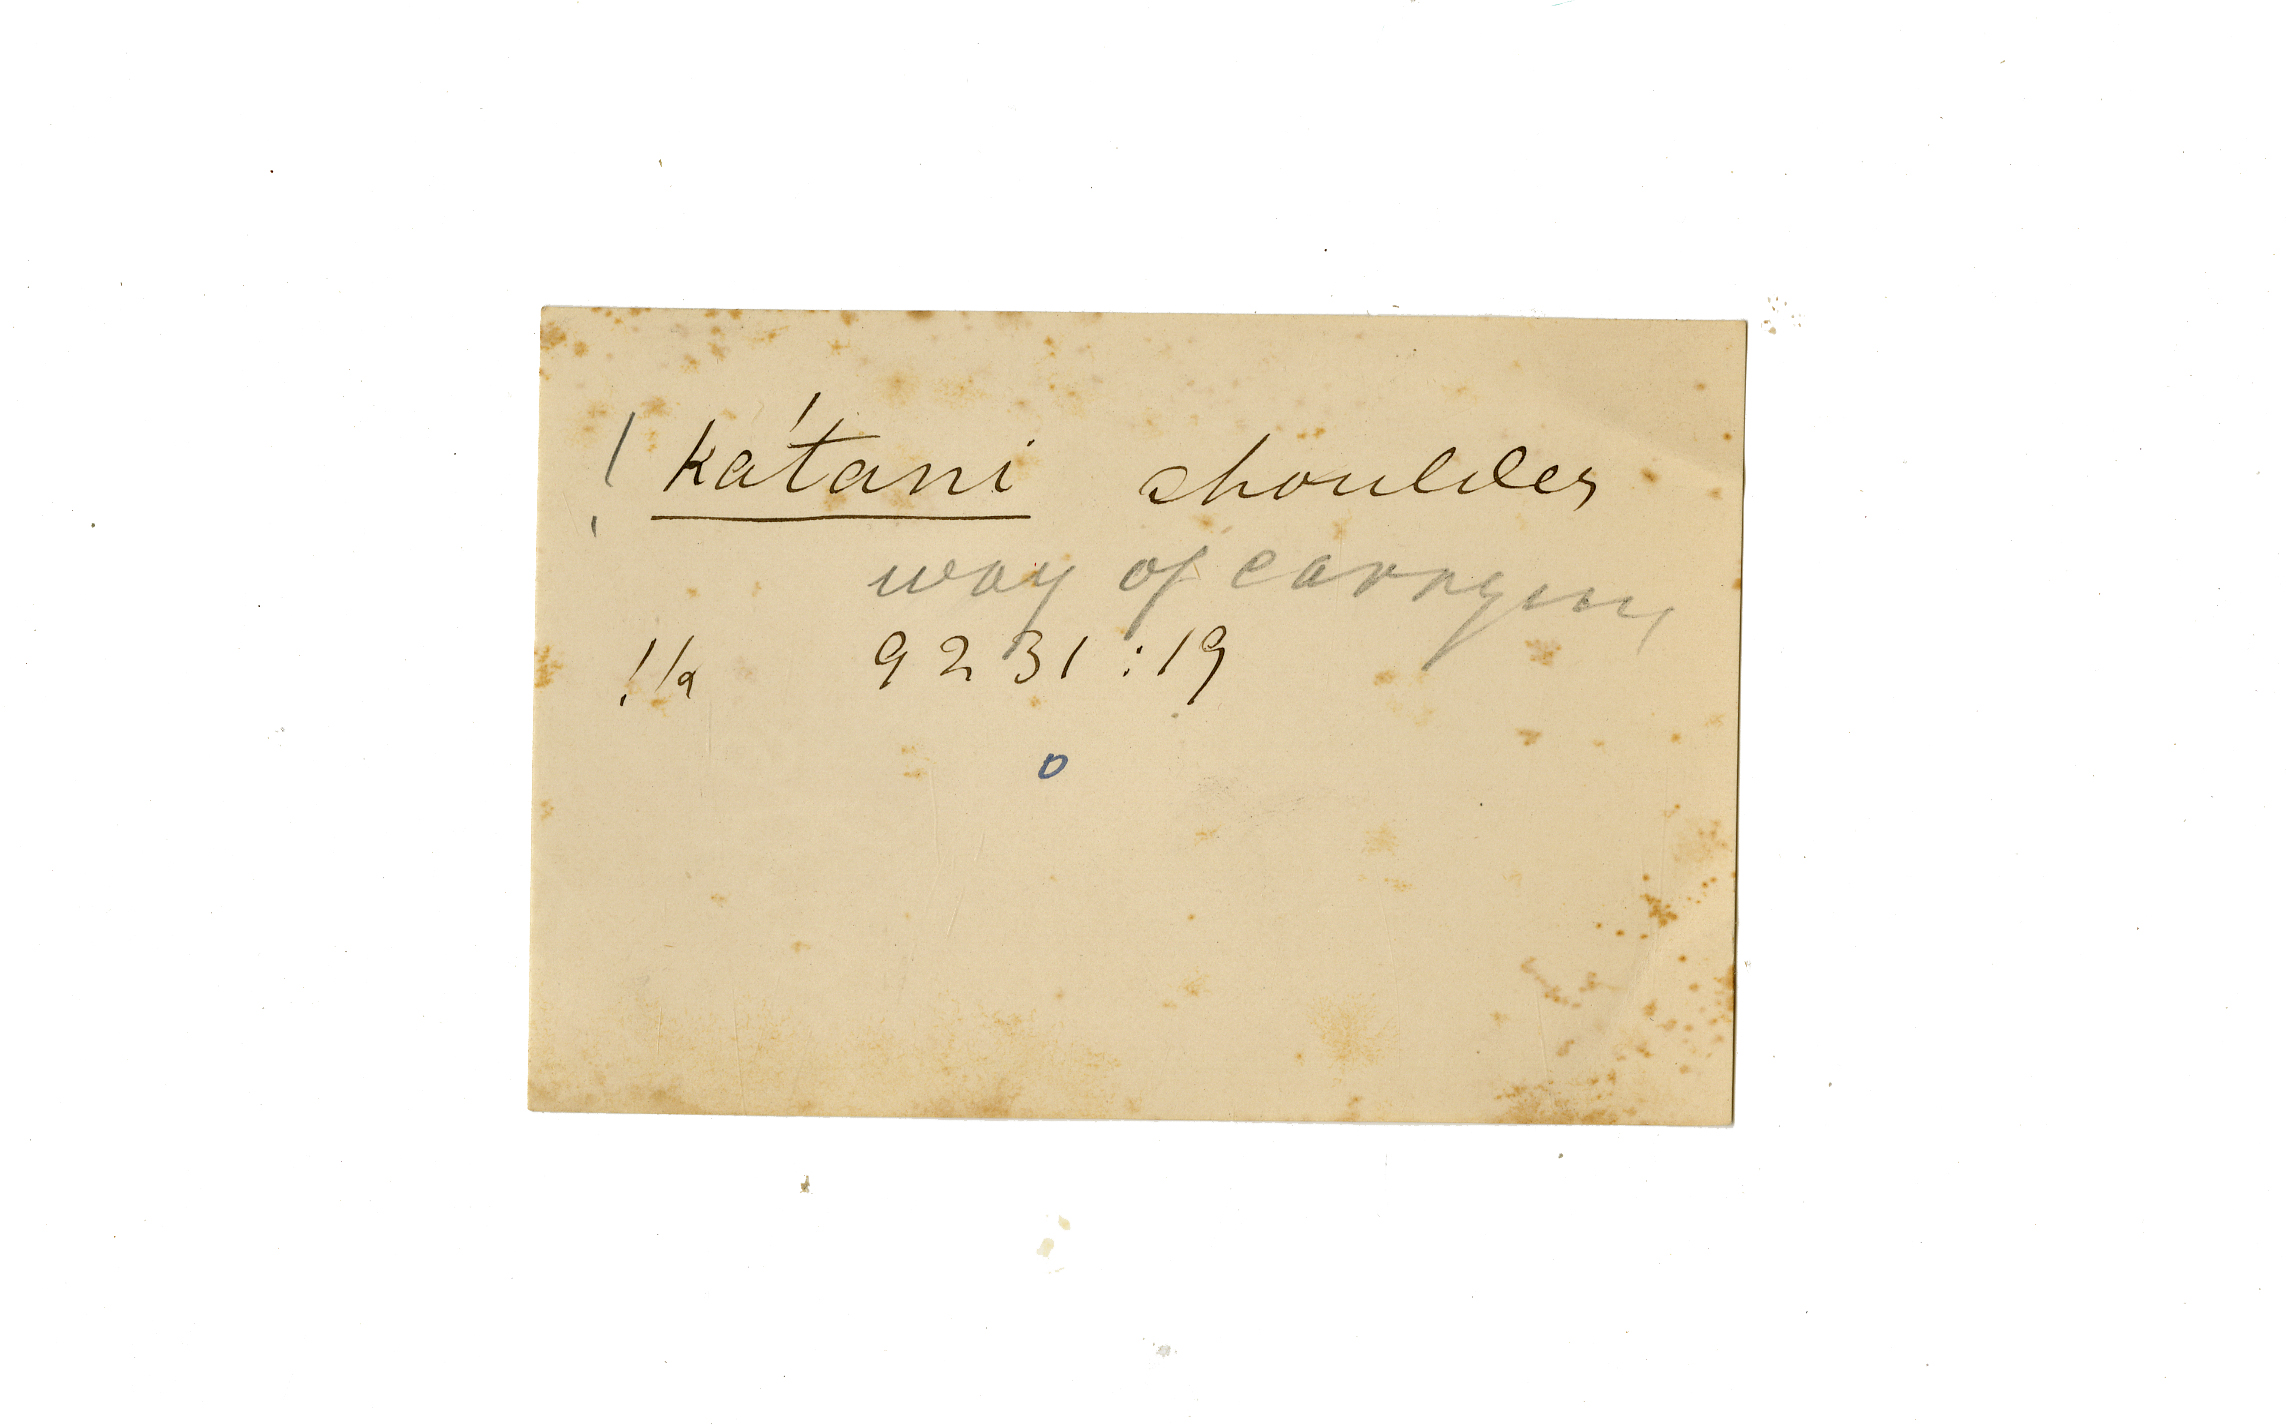 ! ká'tani shoulder
way of carrying
!k 9231:19
o